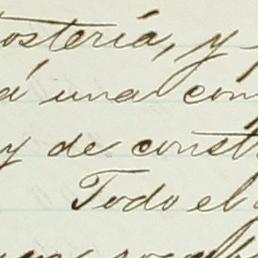 tostería, y
á una com
y de const
Todo el